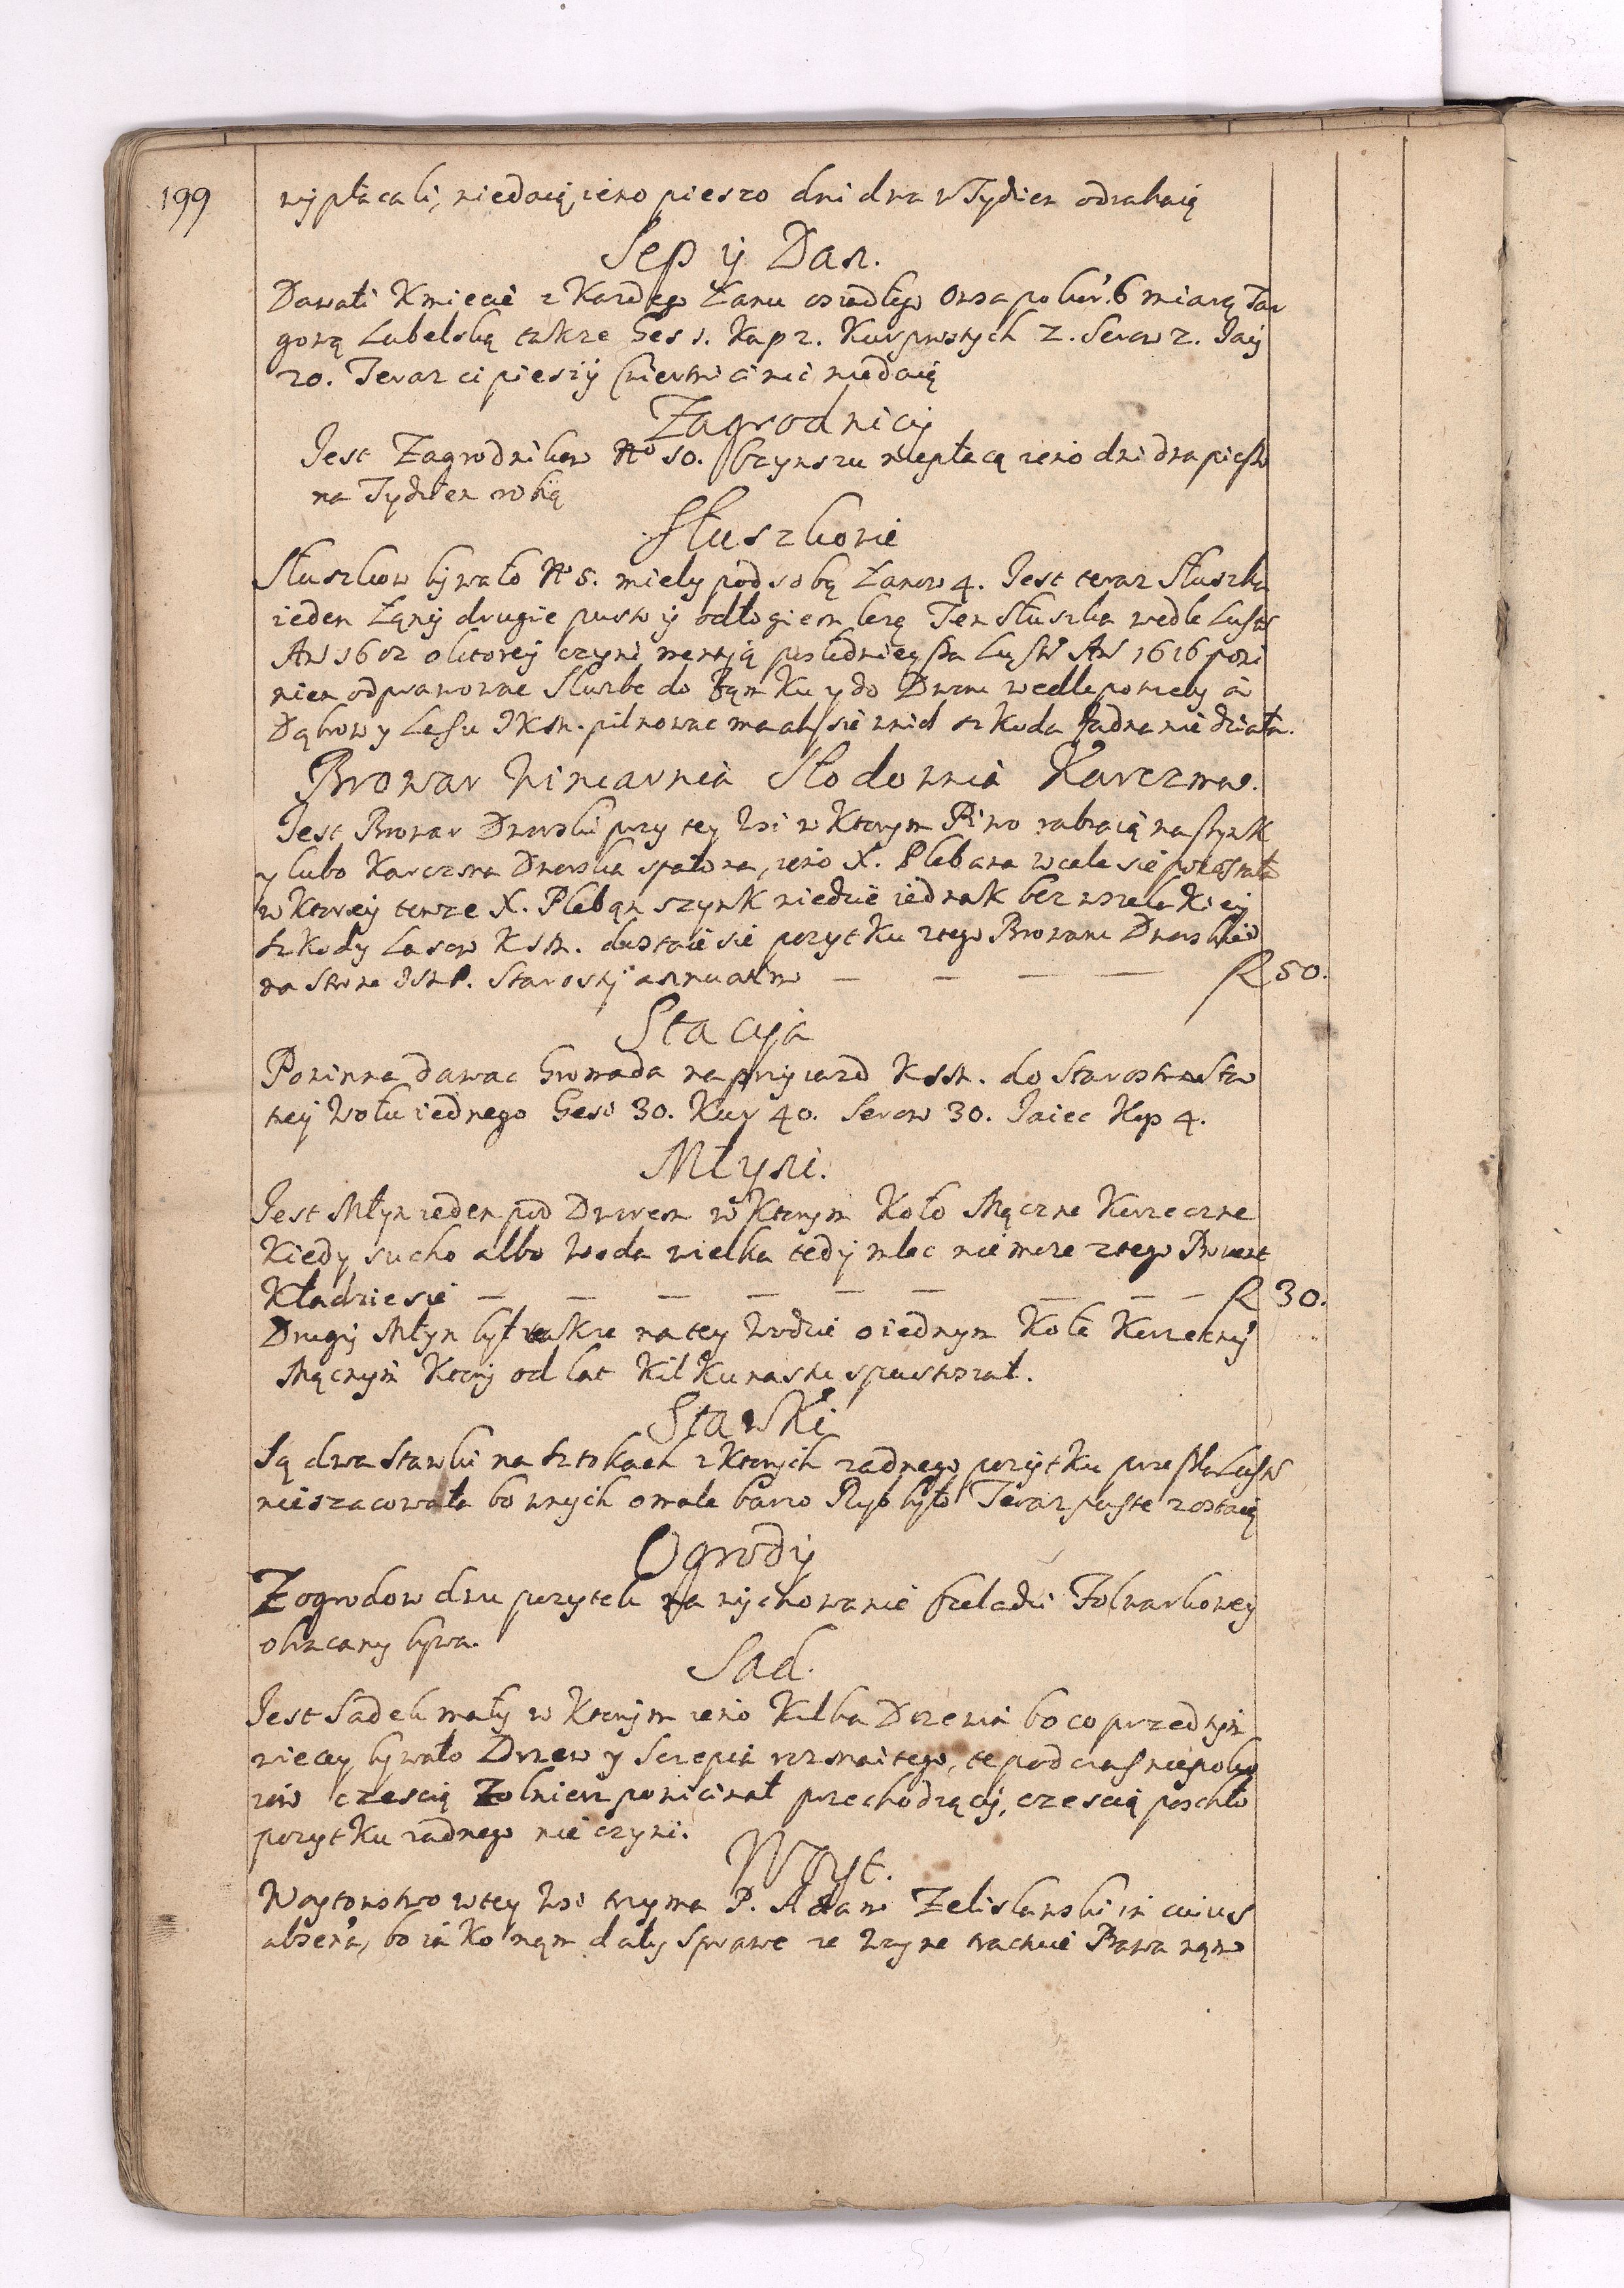 199
wypłacali, niedaią, ieno pieszo dni dwa w Tydzien odrabaią
Sep ÿ Dań.
Dawali Kmiecie z Kazdego Łanu osiadłego Owsa po kor. 6 miarą Tar
gową Lubelską takze Gęs 1. Kap 2. Kur prostych 2. Serow 2. Jaÿ
20. Teraz ci pieszÿ nic niedaią
Zagrodnicÿ
Jest Zagrodnikow No 10. Czynszu niepłacą ieno dni dwa pieszo
na Tydzien robią
Słuszkowie
Słuszkow bÿwało No 5. miely pod sobą Łanow 4. Jest teraz Słuszka
ieden Łąnÿ drugie pusto ÿ odłogiem lezą Ten Słuszka wedle Lustr
An 1602 o ktoreÿ czyni mentią poslednieÿsza Lustr An 1616 powi
nien odprawowac Słuzbe do Zamku y do Dworu wedle potrzeby a
Dąbrow y Lasu JKM. pilnowac ma aby sie w nich szkoda zadna nie działa.
Browar Winiarnia Słodownia Karczma.
Jest Browar Dworski przy tey Wsi w Ktorym Piwo rabiaią na szynk
y lubo Karczma Dworska spalona, ieno X. Plebana wcale sie została
w Ktoreÿ tenze X. Plebąn szynk wiedzie iednak bez wszelakieÿ
szkody Lasow KJM. dostaie sie pozytku z tego Browaru Dworskieo
na strone JMP. Starostÿ annuatim — — — — fl 50.
Stacyja
Powinna dawac Gromada na przyiazd KJM. do Starostwa Sta
cyeÿ Wołu iednego Gesi 30. Kur 40. Serow 30. Jaiec Kop 4.
Młyni.
Jest Młyn ieden pod Dworem w Ktorym Koło Mączne Korzeczne
Kiedy sucho albo Woda wielka tedÿ mlec nie moze z tego Prouent
Kładzie sie — — — — — — — — — fl 30.
Drugÿ Młyn był takze na tey Wodzie o iednym Kole Korzecznÿ
Mącznym Ktorÿ od lat KilKunastu spustoszał.
StawKi
Są dwa Stawki na Sztokach z Ktorych zadnego pozÿtku przeszła Lustr
nieszacowała bo w nych o male barzo Ryb bÿło Teraz puste zostaią
Ogrodÿ
Z ogrodow dwu pozytek na wychowanie Czeladzi Folwarkoweÿ
obracany bywa.
Sad.
Jest Sadek małÿ w Ktorÿm ieno Kilka Drzewia bo co przed tym
wiecey bÿwało Drzew y Szczepia rozmaitego, te pod czas niepoko
iow czescią Zołnierz powicinał przechodzącÿ, czescią poschło
pozytKu zadnego nie czyni.
Woyt.
Woytowstwo w tey Wsi trzyma P. Adam Zelisławski in cuius
absentia, bo iako nąm dały sprawe ze Woyne trachuie Prawa nąm